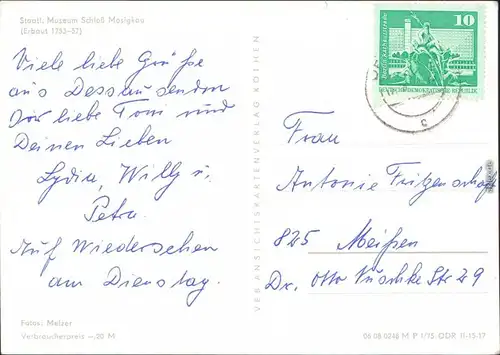 Staatl. Museum Schloß Mosigkau
(Erbaut 1752–57)
Viele liebe Grüße
aus Dessau senden
Dir liebe Toni und
Deinen Lieben
Lydia, Willy u.
Petra.
Auf Wiedersehen
am Dienstag.
Fotos: Melzer
Verbraucherpreis –,20 M
VEB ANSICHTSKARTENVERLAG KÖTHEN
10
Berlin, Rathausstraße
DEUTSCHE DEMOKRATISCHE REPUBLIK
c
Frau
Antonie
825 Meißen
Dr. Otto Nuschke Str 29
06 08 0246 M P 1/75 DDR II-15-17